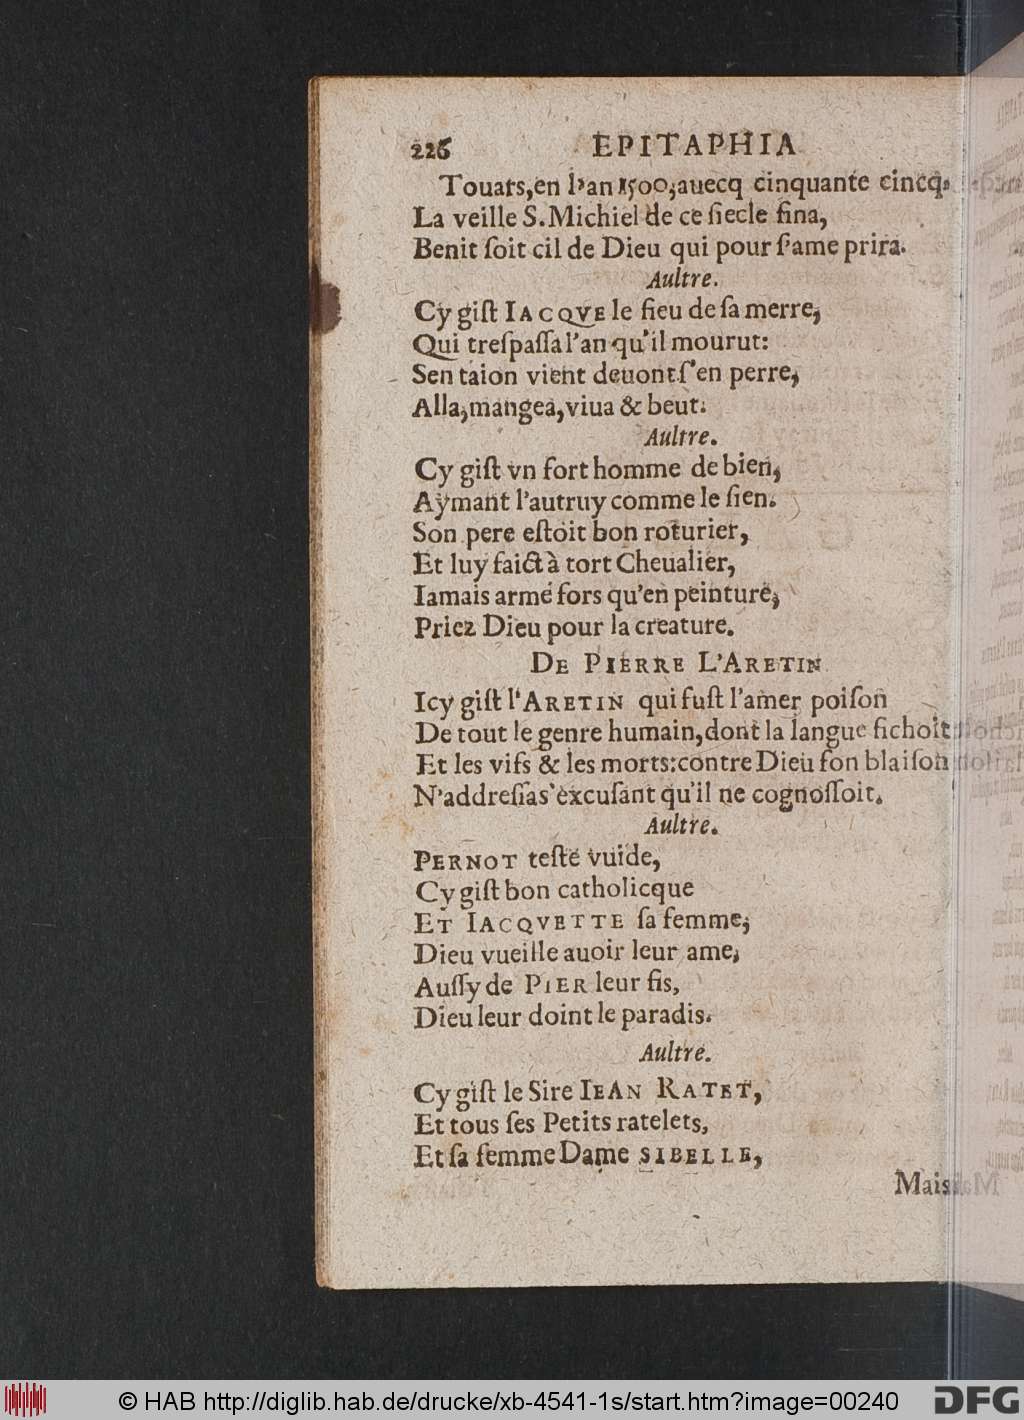 226 EPITAPHIA
Touars, en l'an 1500, auecq cinquante cincq.
La veille S. Michiel de ce ſiecle fina,
Benit ſoit cil de Dieu qui pour ſ'ame prira.
Aultre.
Cy giſt IACQVE le fieu de ſa merre,
Qui treſpaſſa l'an qu'il mourut:
Sen taion vient deuont ſ'en perre,
Alla, mangea, viua & beut.
Aultre.
Cy giſt vn fort homme de bien,
Aymant l'autruy comme le ſien.
Son pere eſtoit bon roturier,
Et luy faict à tort Cheualier,
Iamais armé fors qu'en peinture,
Priez Dieu pour la creature.
DE PIERRE L'ARETIN
Icy giſt l'ARETIN qui fuſt l'amer poiſon
De tout le genre humain, dont la langue fichoit
Et les vifs & les morts: contre Dieu ſon blaiſon
N'addreſſa s'excuſant qu'il ne cognoſſoit.
Aultre.
PERNOT teſte vuide,
Cy giſt bon catholicque
ET IACQVETTE ſa femme,
Dieu vueille auoir leur ame,
Auſſy de PIER leur fis,
Dieu leur doint le paradis.
Aultre.
Cy giſt le Sire IEAN RATET,
Et tous ſes Petits ratelets,
Et ſa femme Dame SIBELLE,
Mais
© HAB http://diglib.hab.de/drucke/xb-4541-1s/start.htm?image=00240
DFG